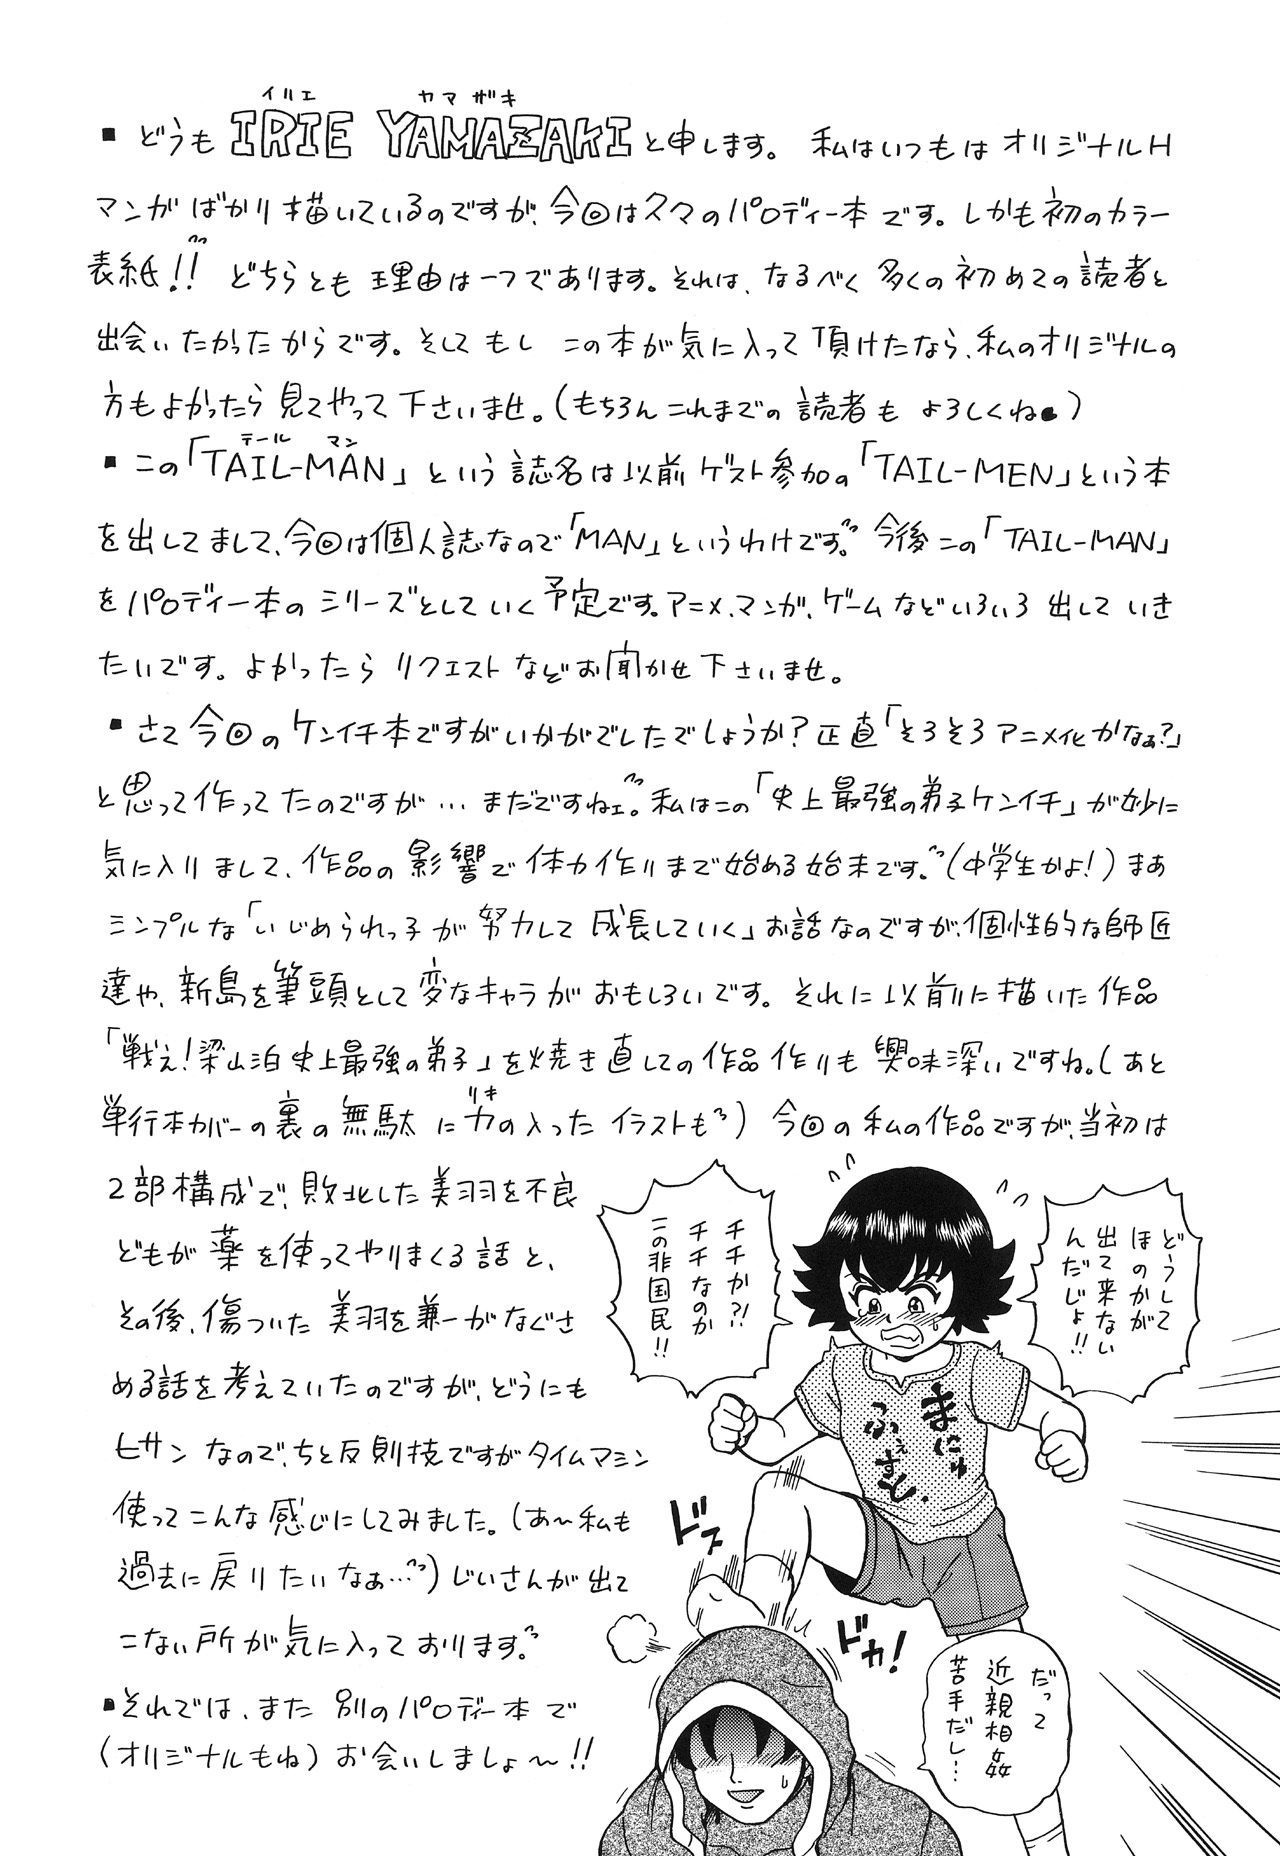 イリエ ヤマザキ
▪ どうも IRIE YAMAZAKI と申します。 私はいつもは オリジナルH
マンガばかり描いているのですが、今回は久々のパロディー本です。しかも初のカラー
表紙!! どちらとも理由は一つであります。それは、なるべく多くの初めての読者と
出会いたかったからです。そしてもし この本が気に入って頂けたなら、私のオリジナルの
方もよかったら見てやって下さいませ。(もちろんこれまでの読者も よろしくね)
テール マン
▪ この「TAIL-MAN」という誌名は以前ゲスト参加の「TAIL-MEN」という本
を出してまして、今回は個人誌なので「MAN」というわけです。今後この「TAIL-MAN」
をパロディー本のシリーズとしていく予定です。アニメ、マンガ、ゲームなどいろいろ出していき
たいです。よかったらリクエストなどお聞かせ下さいませ。
▪ さて今回のケンイチ本ですがいかがでしたでしょうか?正直「そろそろアニメ化かなぁ?」
と思って作ってたのですが…まだですねェ。私はこの「史上最強の弟子ケンイチ」が妙に
気に入りまして、作品の影響で体力作りまで始める始末です。(中学生かよ!)まあ
シンプルな「いじめられっ子が努力して成長していく」お話なのですが、個性的な師匠
達や、新島を筆頭として変なキャラがおもしろいです。それに以前に描いた作品
「戦え!梁山泊史上最強の弟子」を焼き直しての作品作りも興味深いですね。(あと
リキ
単行本カバーの裏の無駄に力の入ったイラストも)今回の私の作品ですが、当初は
2部構成で、敗北した美羽を不良
どもが薬を使ってやりまくる話と、
その後、傷ついた美羽を兼一がなぐさ
める話を考えていたのですが、どうにも
ヒサンなので、ちと反則技ですがタイムマシン
使ってこんな感じにしてみました。(あ〜私も
過去に戻りたいなぁ…)じいさんが出て
こない所が気に入っております。
▪ それでは、また別のパロディー本で
(オリジナルもね)お会いしましょ〜!!
どうして
ほのかが
出て来ない
んだじょ!!
チチか?!
チチなのか
この非国民!!
まにゅ
ふぇすと。
ドス
ドカ!
だって
近親相姦
苦手だし…